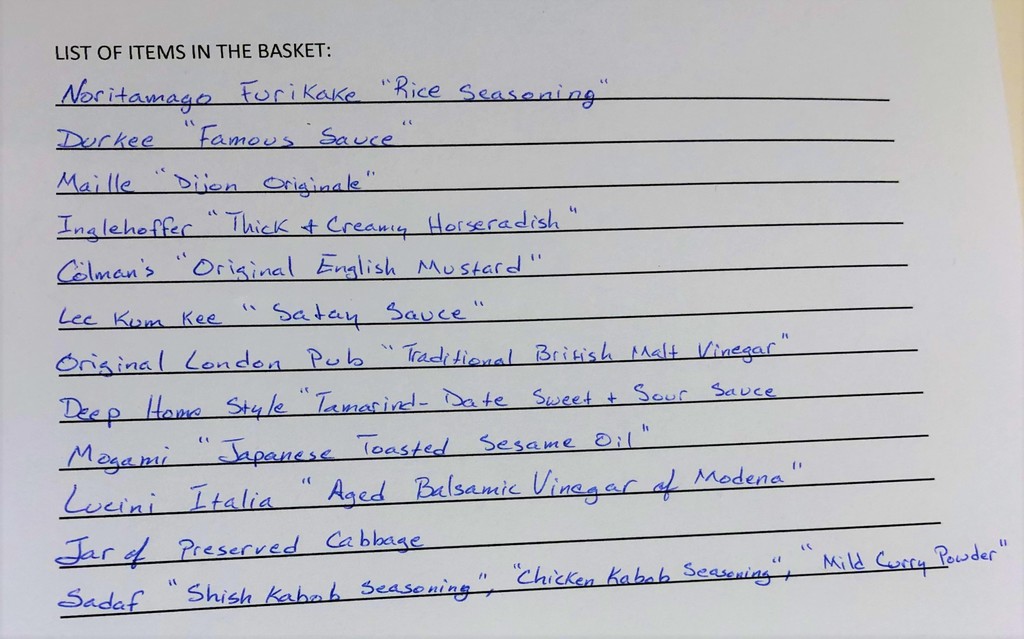 LIST OF ITEMS IN THE BASKET:
Noritamago Furikake "Rice Seasoning"
Durkee "Famous Sauce"
Maille "Dijon Originale"
Inglehoffer "Thick + Creamy Horseradish"
Colman's "Original English Mustard"
Lee Kum Kee "Satay Sauce"
Original London Pub "Traditional British Malt Vinegar"
Deep Home Style "Tamarind-Date Sweet + Sour Sauce
Mogami "Japanese Toasted Sesame Oil"
Lucini Italia "Aged Balsamic Vinegar of Modena"
Jar of Preserved Cabbage
Sadaf "Shish Kabob Seasoning", "Chicken Kabob Seasoning", "Mild Curry Powder"